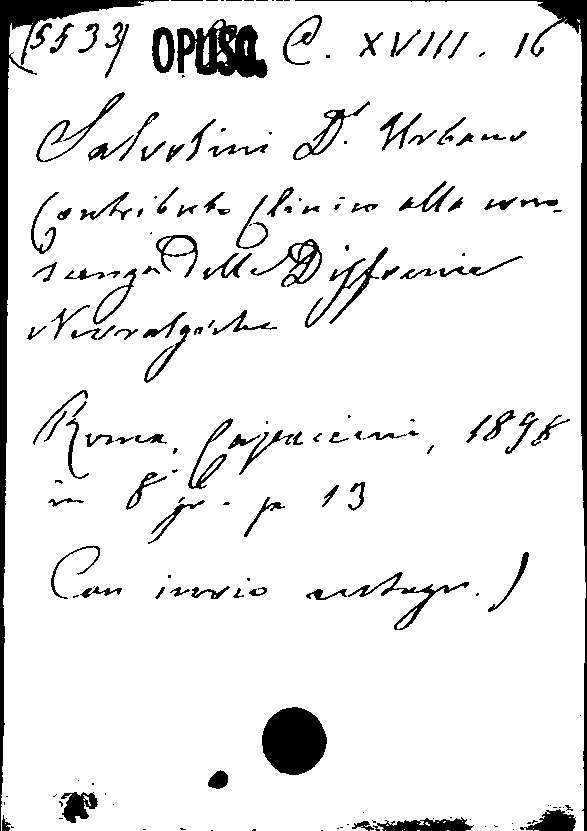 (5533) OPUSC. C. XVIII. 16
Salvolini Dr. Urbano
Contributo Clinico alla cono-
scenza delle Disfrenie
Nevralgiche
Roma, Capaccini, 1898
in 8° gr. p 13
Con invio autogr.)